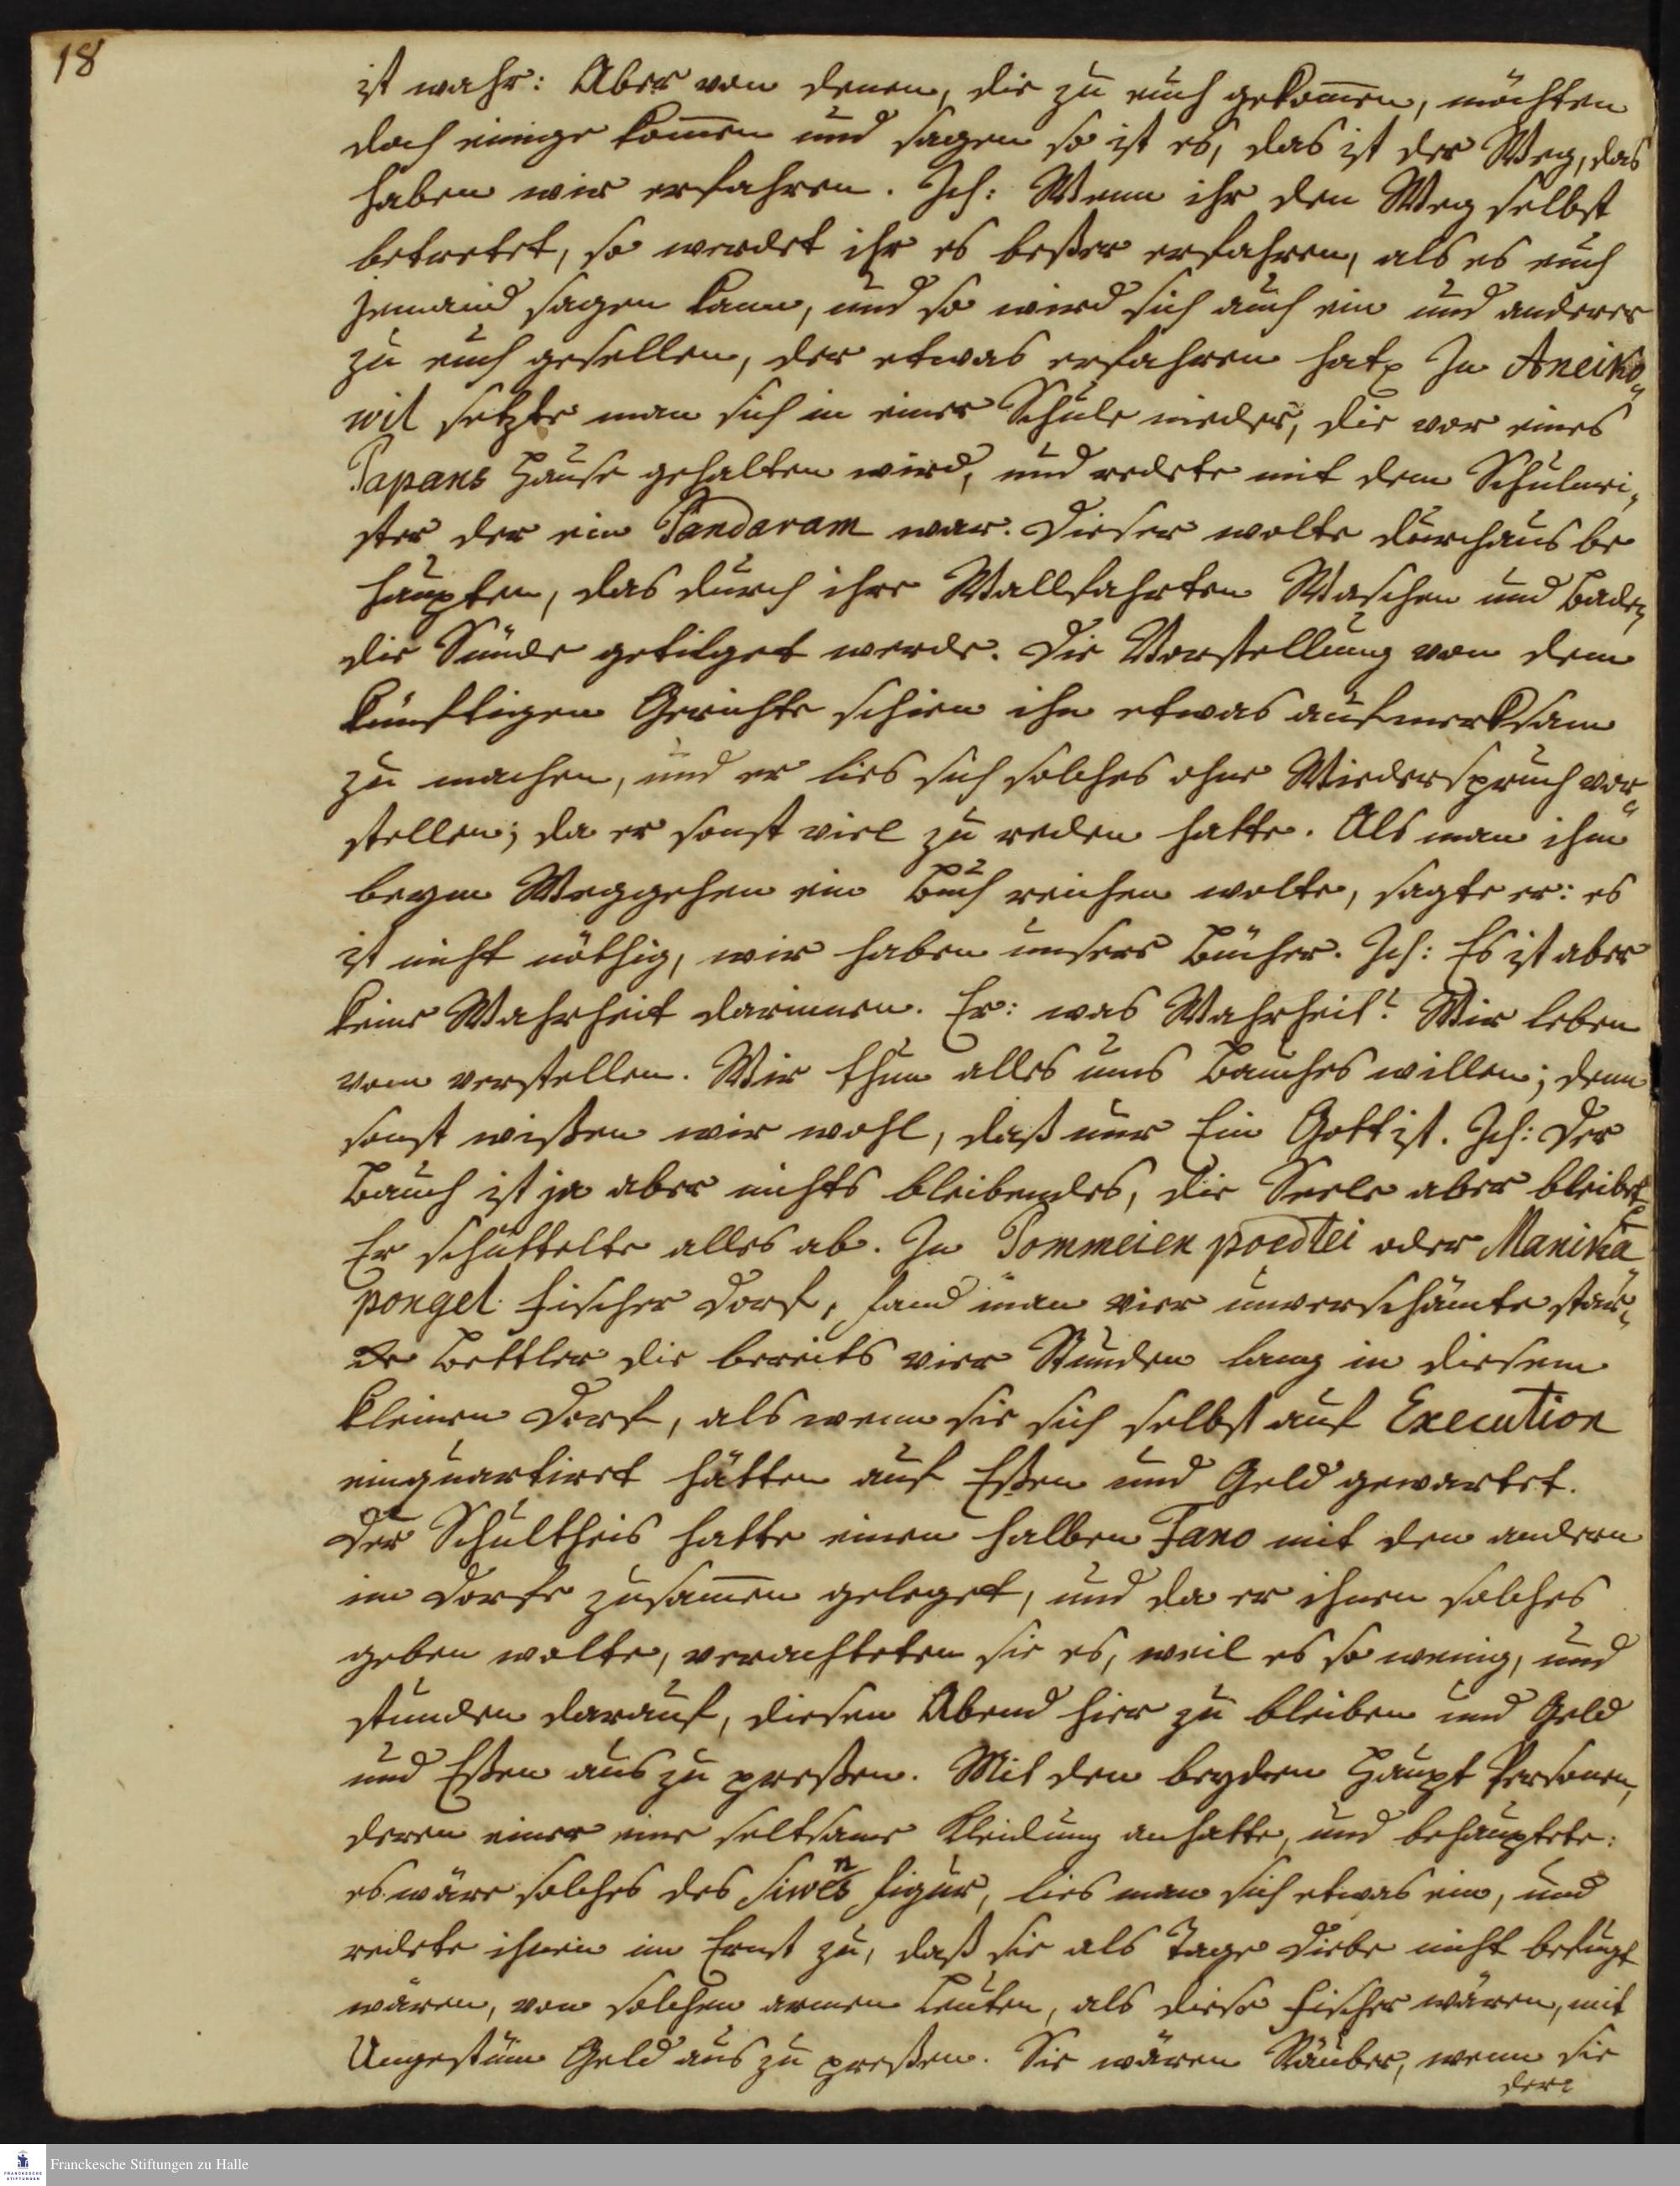 18
ist wahr: Aber von denen, die zu euch gekom̄en, möchten
doch einige kom̄en und sagen so ist es, das ist der Weg, das
haben wir erfahren. Ich: Wenn ihr den Weg selbst
betretet, so werdet ihr es beßer erfahren, als es euch
jemand sagen kann, und so wird sich auch ein und anderer
zu euch gesellen, der etwas erfahren hat. In Aneiko„
wil setzte man sich in einer Schule nieder, die vor eines
Papans Hause gehalten wird, und redete mit dem Schulmei„
ster der ein Pandaram war. Dieser wolte durchaus be
haupten, das durch ihre Wallfahrten Waschen und Baden
die Sünde getilget werde. Die Vorstellung von dem
künftigen Gerichte schien ihn etwas aufmerksam
zu machen, und er lies sich solches ohne Wiederspruch vor„
stellen; da er sonst viel zu reden hatte. Als man ihm
beym Weggehen ein Buch reichen wolte, sagte er: es
ist nicht nöthig, wir haben unsere Bücher. Ich: Es ist aber
keine Wahrheit darinnen. Er: was Wahrheit? Wir leben
vom verstellen. Wir thun alles ums Bauches willen; denn
sonst wißen wir wohl, daß nur Ein Gott ist. Ich: Der
Bauch ist ja aber nichts bleibendes, die Seele aber bleibet
Er schüttelte alles ab. In Pommeien poedtei oder Manika
pongel Fischer Dorf, fand man vier unverschämte star„
ke Bettler die bereits vier Stunden lang in diesem
kleinen Dorf, als wenn sie sich selbst auf Execution
einquartiret hätten auf Eßen und Geld gewartet.
Der Schultheis hatte einen halben Fano mit den andern
im Dorfe zusam̄en geleget, und da er ihnen solches
geben wolte, verachteten sie es, weil es so wenig, und
stunden darauf, diesen Abend hier zu bleiben und Geld
und Eßen aus zu preßen. Mit den beyden Haupt Personen,
deren einer eine seltsame Kleidung anhatte, und behauptete:
es wäre solches des Siwens Figur, lies man sich etwas ein, und
redete ihnen im Ernst zu, daß sie als Tage Diebe nicht befugt
wären, von solchen armen Leuten, als diese Fischer wären, mit
Ungestüm Geld aus zu preßen. Sie wären Räuber, wenn sie
der„
Franckesche Stiftungen zu Halle
FRANCKESCHE
STIFTUNGEN